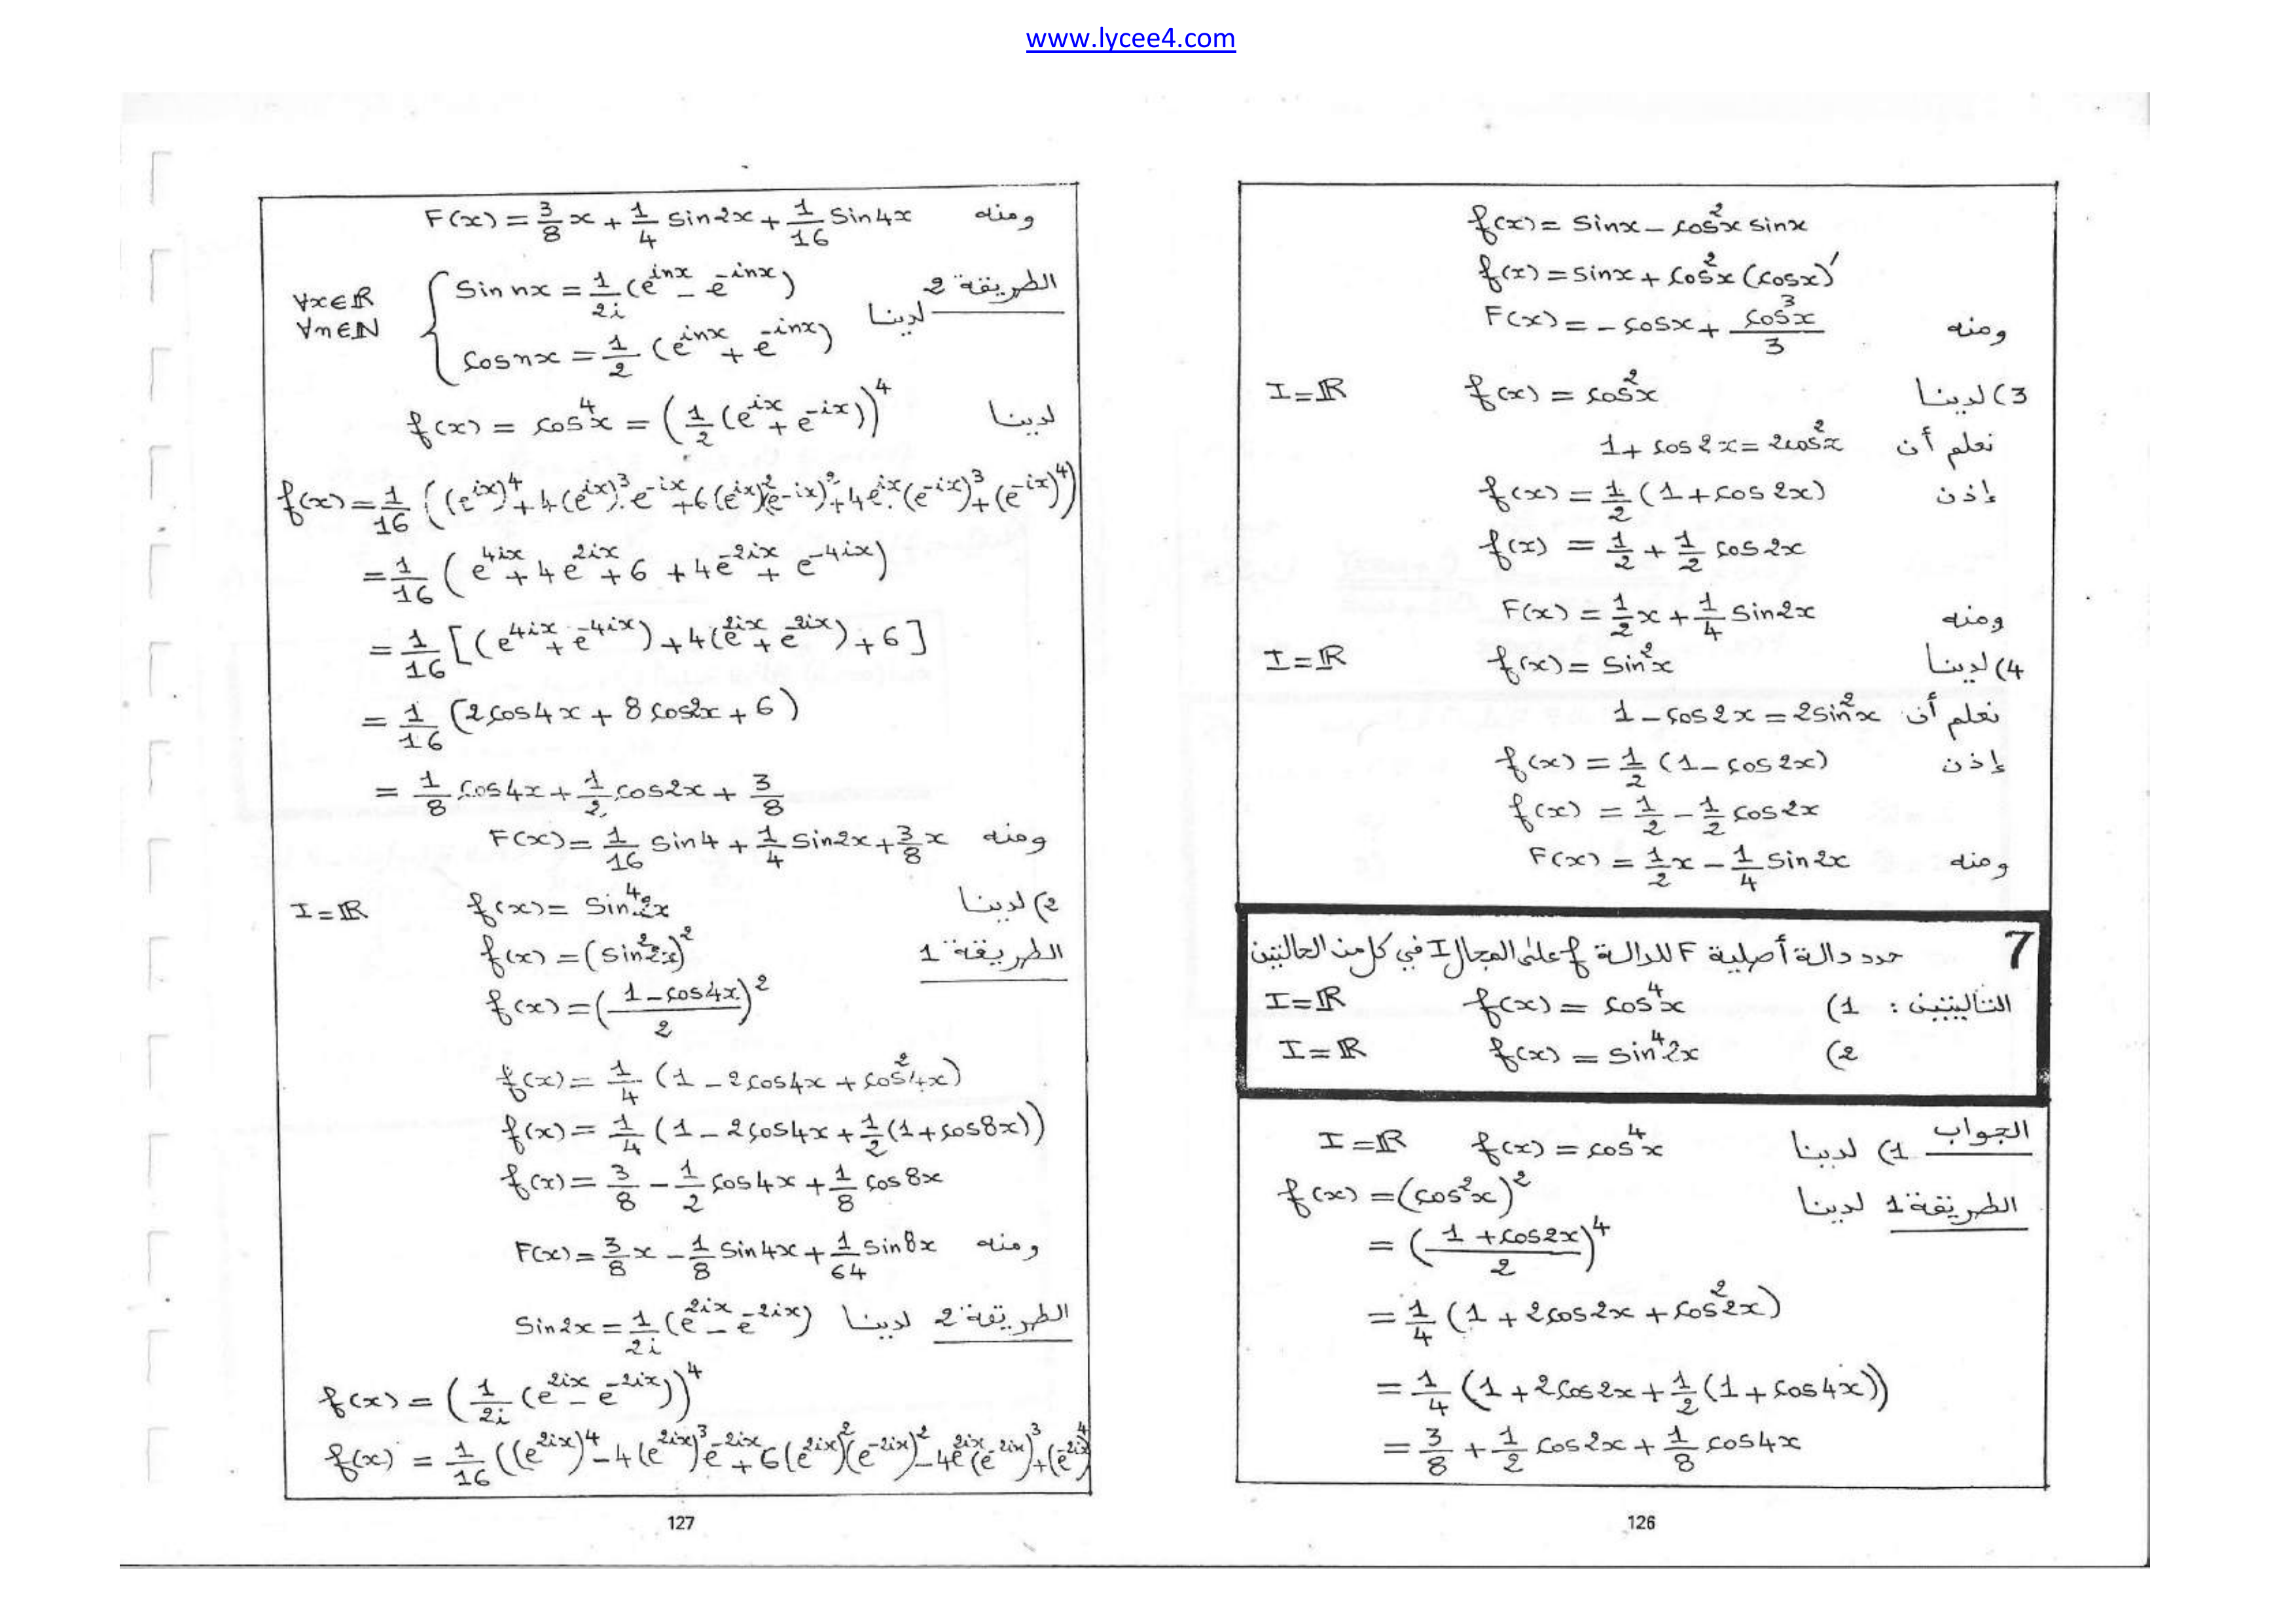 www.lycee4.com
f(x) = sinx - cos²x sinx
f(x) = sinx + cos²x (cosx)'
ومنه F(x) = - cosx + cos³x/3
3) لدينا f(x) = cos²x I = ℝ
نعلم أن 1 + cos2x = 2cos²x
إذن f(x) = 1/2 (1 + cos2x)
f(x) = 1/2 + 1/2 cos2x
ومنه F(x) = 1/2 x + 1/4 sin2x
4) لدينا f(x) = sin²x I = ℝ
نعلم أن 1 - cos2x = 2sin²x
إذن f(x) = 1/2 (1 - cos2x)
f(x) = 1/2 - 1/2 cos2x
ومنه F(x) = 1/2 x - 1/4 sin2x
7 حدد دالة أصلية F للدالة f على المجال I في كل من الحالتين
التاليتين : 1) f(x) = cos⁴x I = ℝ
2) f(x) = sin⁴2x I = ℝ
الجواب 1) لدينا f(x) = cos⁴x I = ℝ
الطريقة 1 لدينا f(x) = (cos²x)²
= ((1 + cos2x)/2)⁴
= 1/4 (1 + 2cos2x + cos²2x)
= 1/4 (1 + 2cos2x + 1/2 (1 + cos4x))
= 3/8 + 1/2 cos2x + 1/8 cos4x
126
ومنه F(x) = 3/8 x + 1/4 sin2x + 1/16 sin4x
الطريقة 2 لدينا { sin nx = 1/2i (e^{inx} - e^{-inx}) ∀x∈ℝ
cos nx = 1/2 (e^{inx} + e^{-inx}) ∀n∈ℕ
لدينا f(x) = cos⁴x = (1/2 (e^{ix} + e^{-ix}))⁴
f(x) = 1/16 ((e^{ix})⁴ + 4(e^{ix})³.e^{-ix} + 6(e^{ix})²(e^{-ix})² + 4e^{ix}.(e^{-ix})³ + (e^{-ix})⁴)
= 1/16 (e^{4ix} + 4e^{2ix} + 6 + 4e^{-2ix} + e^{-4ix})
= 1/16 [(e^{4ix} + e^{-4ix}) + 4(e^{2ix} + e^{-2ix}) + 6]
= 1/16 (2cos4x + 8cos2x + 6)
= 1/8 cos4x + 1/2 cos2x + 3/8
ومنه F(x) = 1/16 sin4 + 1/4 sin2x + 3/8 x
2) لدينا f(x) = sin⁴2x I = ℝ
الطريقة 1 f(x) = (sin²2x)²
f(x) = ((1 - cos4x)/2)²
f(x) = 1/4 (1 - 2cos4x + cos²4x)
f(x) = 1/4 (1 - 2cos4x + 1/2 (1 + cos8x))
f(x) = 3/8 - 1/2 cos4x + 1/8 cos8x
ومنه F(x) = 3/8 x - 1/8 sin4x + 1/64 sin8x
الطريقة 2 لدينا sin2x = 1/2i (e^{2ix} - e^{-2ix})
f(x) = (1/2i (e^{2ix} - e^{-2ix}))⁴
f(x) = 1/16 ((e^{2ix})⁴ - 4(e^{2ix})³e^{-2ix} + 6(e^{2ix})²(e^{-2ix})² - 4e^{2ix}(e^{-2ix})³ + (e^{-2ix})⁴
127